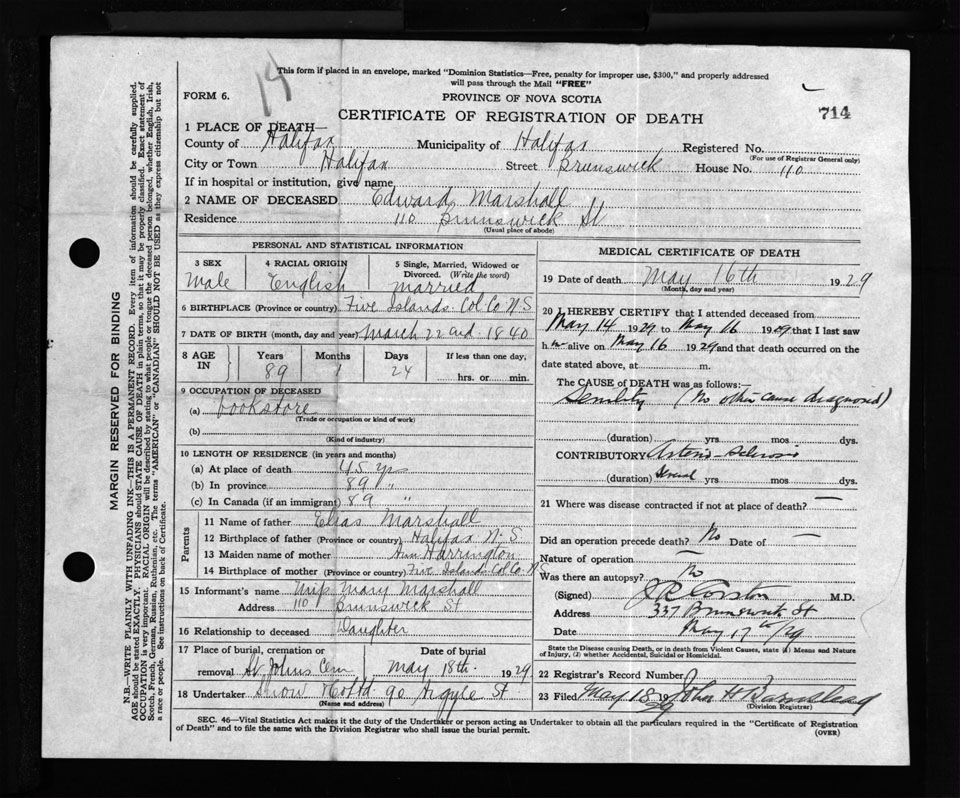 14
This form if placed in an envelope, marked "Dominion Statistics—Free, penalty for improper use, $300," and properly addressed
will pass through the Mail "FREE"
FORM 6.
PROVINCE OF NOVA SCOTIA
714
CERTIFICATE OF REGISTRATION OF DEATH
1 PLACE OF DEATH—
County of Halifax Municipality of Halifax Registered No.
(For use of Registrar General only)
City or Town Halifax Street Brunswick House No. 110
If in hospital or institution, give name
2 NAME OF DECEASED Edward Marshall
Residence 110 Brunswick St
(Usual place of abode)
PERSONAL AND STATISTICAL INFORMATION
3 SEX Male
4 RACIAL ORIGIN English
5 Single, Married, Widowed or Divorced. (Write the word) Married
6 BIRTHPLACE (Province or country) Five Islands. Col. Co. N.S
7 DATE OF BIRTH (month, day and year) March 22nd. 1840
8 AGE IN Years 89 Months 1 Days 24 If less than one day, hrs. or min.
9 OCCUPATION OF DECEASED
(a) bookstore
(Trade or occupation or kind of work)
(b)
(Kind of industry)
10 LENGTH OF RESIDENCE (in years and months)
(a) At place of death 45 yr
(b) In province 89 "
(c) In Canada (if an immigrant) 89 "
Parents
11 Name of father Elias Marshall
12 Birthplace of father (Province or country) Halifax N.S
13 Maiden name of mother Ann Harrington
14 Birthplace of mother (Province or country) Five Islands Col. Co. N.S
15 Informant's name Miss Mary Marshall
Address 110 Brunswick St
16 Relationship to deceased Daughter
17 Place of burial, cremation or removal St Johns Cem Date of burial May 18th. 1929
18 Undertaker Snow & Co Ltd 90 Argyle St
(Name and address)
MEDICAL CERTIFICATE OF DEATH
19 Date of death May 16th 1929
(Month, day and year)
20 I HEREBY CERTIFY that I attended deceased from
May 14 1929 to May 16 1929 that I last saw
him alive on May 16 1929 and that death occurred on the
date stated above, at m.
The CAUSE OF DEATH was as follows:
Senility (No other cause diagnosed)
(duration) yrs mos dys.
CONTRIBUTORY Arterio-Sclerosis
(duration) Several yrs mos dys.
21 Where was disease contracted if not at place of death? —
Did an operation precede death? No Date of —
Nature of operation —
Was there an autopsy? No
(Signed) M.D.
Address 337 Brunswick St
Date May 17th/29
State the Disease causing Death, or in death from Violent Causes, state (1) Means and Nature
of Injury, (2) whether Accidental, Suicidal or Homicidal.
22 Registrar's Record Number
23 Filed May 18 1929 John H
(Division Registrar)
SEC. 46—Vital Statistics Act makes it the duty of the Undertaker or person acting as Undertaker to obtain all the particulars required in the "Certificate of Registration
of Death" and to file the same with the Division Registrar who shall issue the burial permit.
(OVER)
MARGIN RESERVED FOR BINDING
N.B.—WRITE PLAINLY WITH UNFADING INK—THIS IS A PERMANENT RECORD. Every item of information should be carefully supplied.
AGE should be stated EXACTLY. PHYSICIANS should STATE CAUSE OF DEATH in plain terms, so that it may be properly classified. Exact statement of
OCCUPATION is very important. RACIAL ORIGIN will be described by stating to what people or tongue the deceased person belonged, whether English, Irish,
Scotch, French, German, Russian, Ruthenian, etc. The terms "AMERICAN" or "CANADIAN" SHOULD NOT BE USED as they express citizenship but not
a race or people. See instructions on back of Certificate.